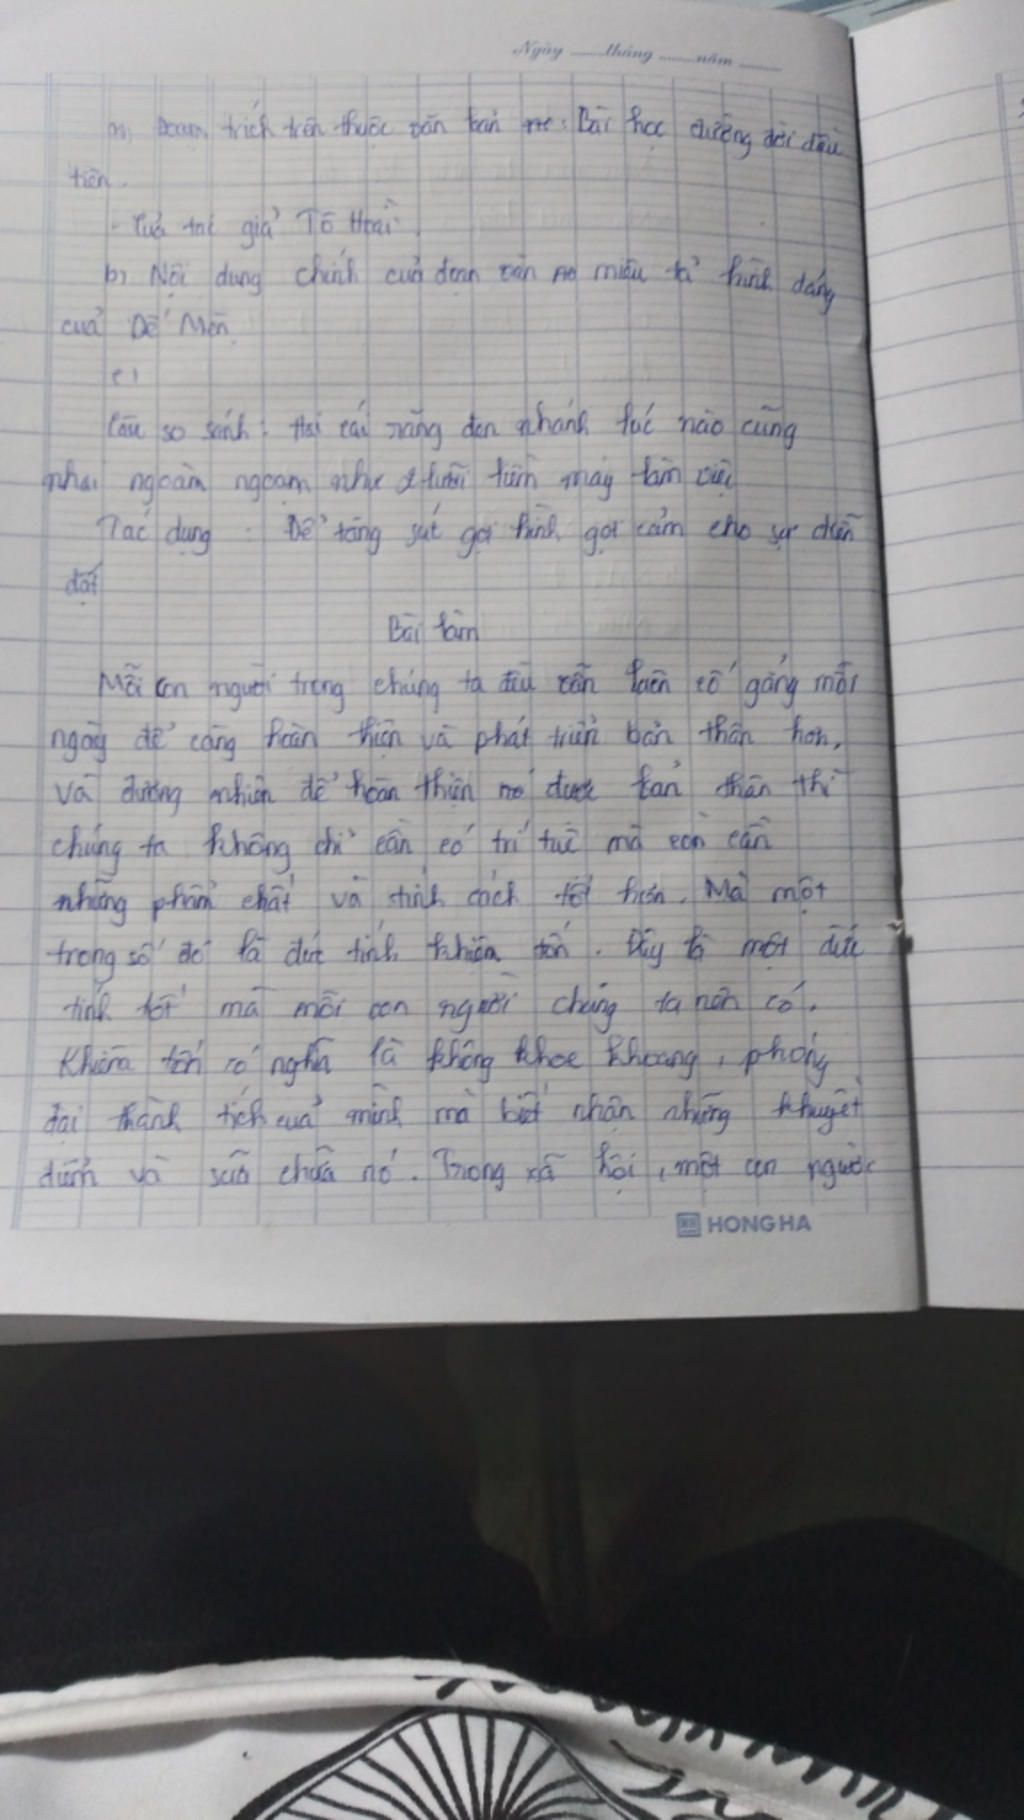 Ngày ...... tháng ...... năm ......
a, Đoạn trích trên thuộc văn bản : Bài học đường đời đầu
tiên.
- Của tác giả Tô Hoài.
b, Nội dung chính của đoạn văn miêu tả hình dáng
của Dế Mèn.
c,
Câu so sánh : Hai cái răng đen nhánh lúc nào cũng
nhai ngoàm ngoạm như 2 lưỡi liềm máy làm việc
Tác dụng : Để tăng sức gợi hình gợi cảm cho sự diễn
đạt
Bài làm
Mỗi con người trong chúng ta đều cần luôn cố gắng mỗi
ngày để càng hoàn thiện và phát triển bản thân hơn,
và đương nhiên để hoàn thiện được bản thân thì
chúng ta không chỉ cần có trí tuệ mà còn cần
những phẩm chất và tính cách tốt hơn. Mà một
trong số đó là đức tính khiêm tốn. Đây là một đức
tính tốt mà mỗi con người chúng ta nên có.
Khiêm tốn có nghĩa là không khoe khoang, phóng
đại thành tích của mình mà biết nhận những khuyết
điểm và sửa chữa nó. Trong xã hội, một con người
HONG HA